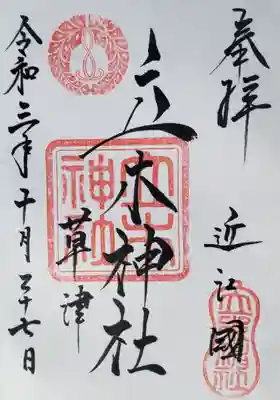 奉拝
近江國
立木神社
草津
令和三年十月二十七日
立木神社